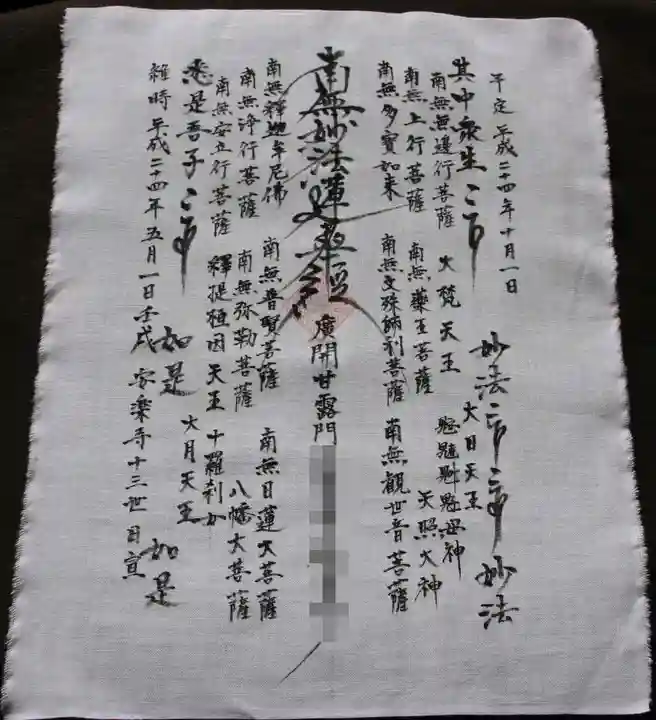 平成二十四年十月一日
妙法
妙法
其中衆生
大日天王
南無無邊行菩薩
大梵天王
鬼子母神
天照大神
南無上行菩薩
南無藥王菩薩
南無多寳如来
南無文殊師利菩薩
南無觀世音菩薩
南無妙法蓮華經
廣開甘露門
南無釋迦牟尼佛
南無普賢菩薩
南無日蓮大菩薩
南無浄行菩薩
南無弥勒菩薩
八幡大菩薩
南無安立行菩薩
釋提桓因天王
十羅刹女
悉是吾子
如是
大月天王
如是
維時平成二十四年五月一日壬戌
安楽寺十三世日宣